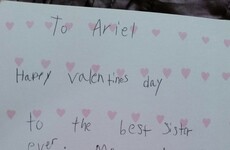 To Ariel
Happy valentines day
to the best Sister
ever.